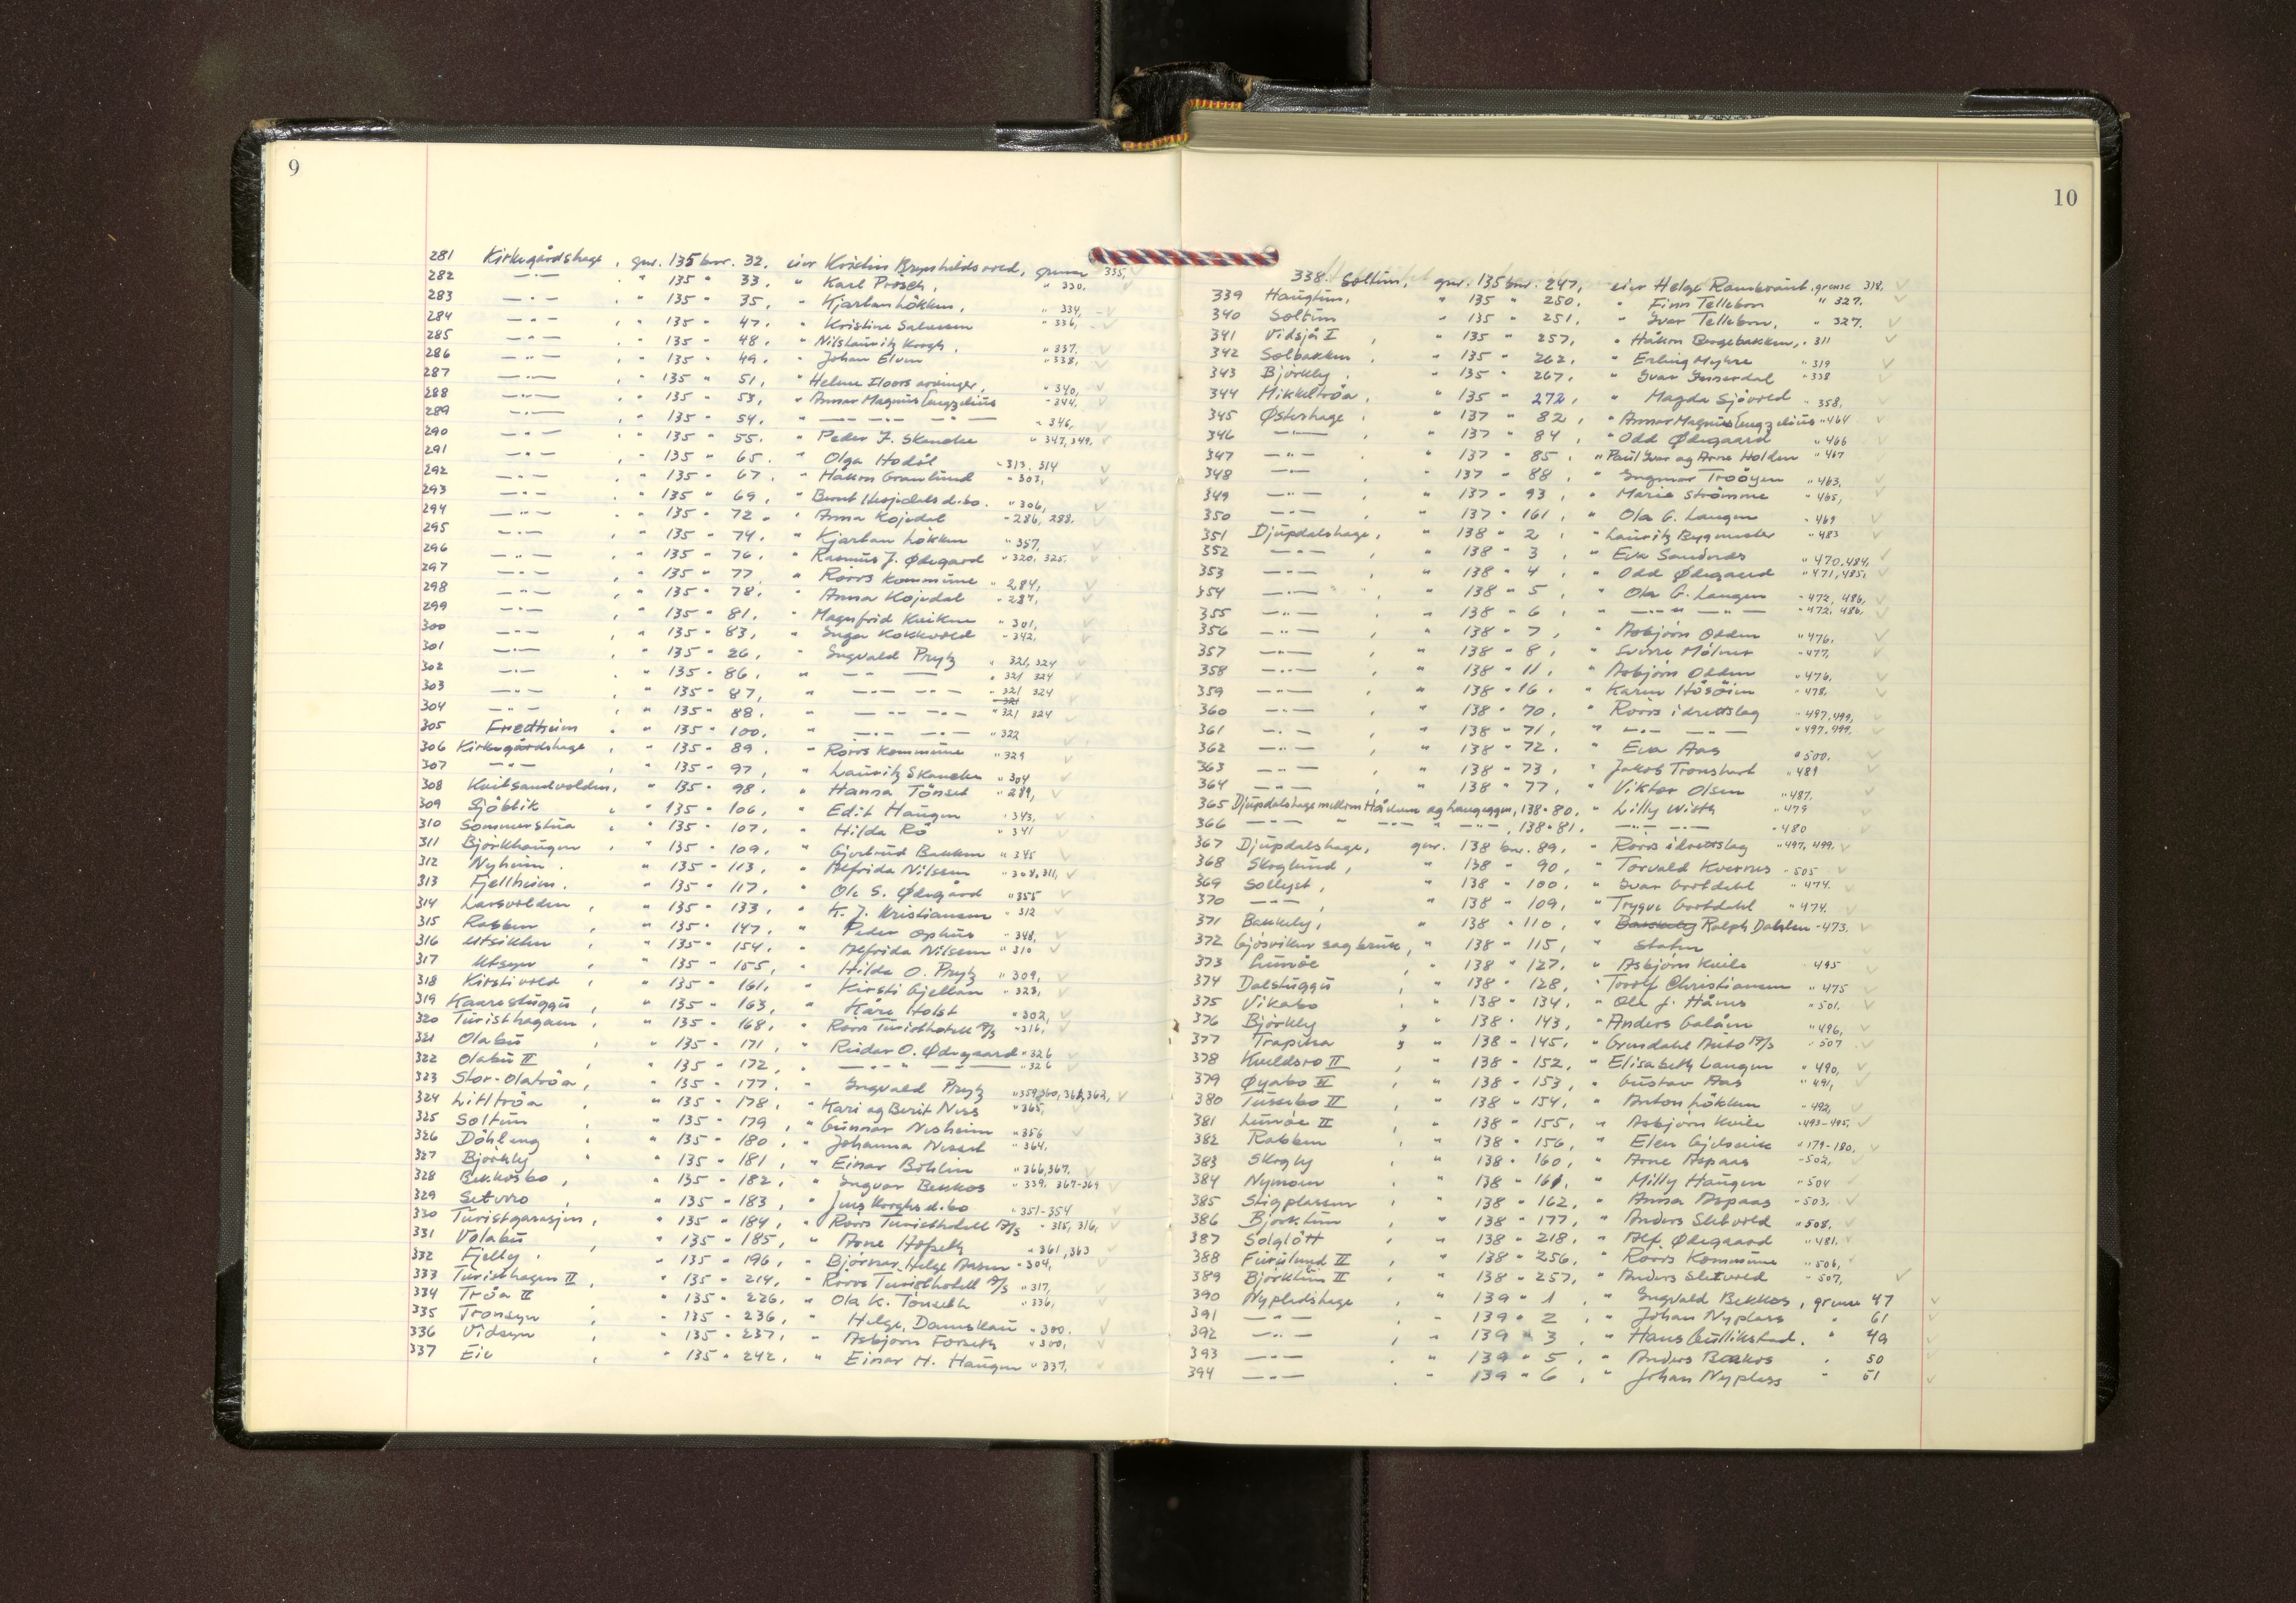 9
281 Kirkegårdshage, gnr. 135 bnr. 32, eier Kristin Brynhildsvold, grense 335,
282 —"— , " 135 " 33, " Karl Prösch, " 330,
283 —"— , " 135 " 35, " Kjartan Løkken, " 334,
284 —"— , " 135 " 47, " Kristine " 336,
285 —"— , " 135 " 48, " Nils Lauritz Krogh, " 337,
286 —"— , " 135 " 49, " Johan Elven " 338,
287 —"— , " 135 " 51, " Helene Floors arvinger, " 340,
288 —"— , " 135 " 53, " Annar Magnus Engzelius " 344,
289 —"— , " 135 " 54, " —"— —"— —"— " 346,
290 —"— , " 135 " 55, " Peder J. Skancke " 347, 349,
291 —"— , " 135 " 65, " Olga Hodøl " 313, 314
292 —"— , " 135 " 67, " Håkon Granlund " 303,
293 —"— , " 135 " 69, " Bernt d.bo. " 306,
294 —"— , " 135 " 72, " Anna Kojedal " 286, 288,
295 —"— , " 135 " 74, " Kjartan Løkken " 357,
296 —"— , " 135 " 76, " Rasmus J. Ødegaard " 320, 325,
297 —"— , " 135 " 77, " Røros Kommune " 284,
298 —"— , " 135 " 78, " Anna Kojedal " 287,
299 —"— , " 135 " 81, " Magnfrid Kvikne " 301,
300 —"— , " 135 " 83, " Inga Kokkvold " 342,
301 —"— , " 135 " 26, " Ingvald Prytz " 321, 324
302 —"— , " 135 " 86, " —"— " 321 324
303 —"— , " 135 " 87, " —"— —"— " 321 324
304 —"— , " 135 " 88, " —"— —"— " 321 324
305 Fredheim , " 135 " 100, " —"— —"— " 322
306 Kirkegårdshage , " 135 " 89, " Røros Kommune " 329
307 —"— , " 135 " 97, " Lauritz Skancke " 304
308 Kvitsandvolden, " 135 " 98, " Hanna Tønset " 289,
309 Sjøblik , " 135 " 106, " Edit Haugen " 343,
310 Sommerstua , " 135 " 107, " Hilda Rø " 341
311 Bjørkhaugen , " 135 " 109, " Gjertrud Bakken " 345
312 Nyheim , " 135 " 113, " Alfrida Nilssen " 308, 311,
313 Fjellheim, " 135 " 117, " Ole S. Ødegård " 355
314 Larsvolden , " 135 " 133, " K. J. Kristiansen " 312
315 Rabben , " 135 " 147, " Peder Ophus " 348,
316 Utsikten , " 135 " 154, " Alfrida Nilssen " 310
317 Utsyn , " 135 " 155, " Hilda O. Prytz " 309,
318 Kirstivold , " 135 " 161, " Kirsti Gjellan " 323,
319 Kaarestuggu , " 135 " 163, " Kåre Holst " 302,
320 Turisthagaen , " 135 " 168, " Røros Turisthotell A/S " 316,
321 Olabu , " 135 " 171, " Reidar O. Ødegaard " 326
322 Olabu II , " 135 " 172, " —"— " —"— " 326
323 Stor-Olatrøa, " 135 " 177, " Ingvald Prytz " 359, 360, 361, 362,
324 Litltrøa , " 135 " 178, " Kari og Berit Ness " 365,
325 Soltun , " 135 " 179, " Gunnar Nesheim " 356
326 Døhleng , " 135 " 180, " Johanna Nesset " 364,
327 Bjørkly , " 135 " 181, " Einar Böhlin " 366, 367,
328 Bekkosbo , " 135 " 182, " Ingvar Bekkos " 339, 367-369
329 Setvoro , " 135 " 183, " Jens Korghs d.bo " 351-354
330 Turistgarasjen, " 135 " 184, " Røros Turisthotell A/S " 315, 316,
331 Volabu , " 135 " 185, " Arne Hofseth " 361, 363
332 Fjelly , " 135 " 196, " Bjørnar Helge Aasen " 304,
333 Turisthagen II , " 135 " 214, " Røros Turisthotell A/S " 317,
334 Trøa II , " 135 " 226, " Ola K. Tønseth " 336,
335 Tronsyn , " 135 " 236, " Helge Damskau " 300,
336 Vidsyn , " 135 " 237, " Asbjørn Forseth " 300,
337 Eio , " 135 " 242, " Einar H. Haugen " 337,
10
338. Soltun, gnr. 135 bnr. 247, eier Helge Rambraut, grense 318,
339 Haugtun, " 135 " 250, " Finn Tellebon " 327,
340 Soltun " 135 " 251, " Ivar Tellebon, " 327,
341 Vidsjå I , " 135 " 257, " Håkon Borgebakken, " 311
342 Solbakken , " 135 " 262, " Erling Myhre " 319
343 Bjørkly , " 135 " 267, " Ivar Innerdal " 338
344 Mikkeltrøa , " 135 " 272, " Magda Sjøvold " 358,
345 Østershage , " 137 " 82, " Annar Magnus Engzelius " 464
346 —"— " 137 " 84, " Odd Ødegaard " 466
347 —"— , " 137 " 85, " Paul Ivar og Arne Holden " 467
348 —"— " 137 " 88, " Ingmar Trøøyen " 463,
349 —"— , " 137 " 93, " Marie Strømme " 465,
350 —"— , " 137 " 161, " Ola G. Langen " 469
351 Djupdalshage, " 138 " 2, " Lauritz Bygmester " 483
352 —"— , " 138 " 3, " Eva Sandnes " 470, 484,
353 —"— , " 138 " 4, " Odd Ødegaard " 471, 485,
354 —"— , " 138 " 5, " Ola G. Langen " 472, 486,
355 —"— , " 138 " 6, " —"— " —"— " 472, 486,
356 —"— , " 138 " 7, " Asbjørn Odden " 476,
357 —"— , " 138 " 8, " Sverre Mølner " 477,
358 —"— , " 138 " 11, " Asbjørn Odden " 476,
359 —"— , " 138 " 16, " Karen Håsøien " 478,
360 —"— , " 138 " 70, " Røros idrettslag " 497, 499,
361 —"— , " 138 " 71, " —"— —"— " 497, 499,
362 —"— , " 138 " 72, " Eva Aas " 500,
363 —"— , " 138 " 73, " Jakob Tronshart " 489
364 —"— , " 138 " 77, " Viktor Olsen " 487,
365 Djupdalshage mellom Håsåen og haugeggen, 138 " 80, " Lilly With " 479
366 —"— " —"— " —"—, 138 " 81, —"— —"— " 480
367 Djupdalshage, gnr. 138 bnr. 89, " Røros idrettslag " 497, 499,
368 Skoglund, " 138 " 90, " Torvald Kvernes " 505
369 Sollyst, " 138 " 100, " Ivar Gortdahl " 474,
370 —"— , " 138 " 109, " Trygve Gortdahl " 474,
371 Bakkely, " 138 " 110, " Ralph Dahlen " 473,
372 Gjøsviken sagbruk, " 138 " 115, " Staten
373 Lunåe , " 138 " 127, " Asbjørn Kvile 495
374 Dalstuggu , " 138 " 128, " Torolf Christiansen " 475
375 Vikabo , " 138 " 134, " Ole J. Hånes " 501,
376 Bjørkly , " 138 " 143, " Anders Galåen " 496,
377 Trapina , " 138 " 145, " Grindahl Auto A/S " 507
378 Kveldsro II , " 138 " 152, " Elisabeth Langen " 490,
379 Øyabo II , " 138 " 153, " Gustav Aas " 491,
380 Tussebo II " 138 " 154, " Anton Løkken " 492,
381 Lunåe II , " 138 " 155, " Asbjørn Kvile " 493-495,
382 Rabben , " 138 " 156, " Elen Gjelsvik " 179-180,
383 Skogly , " 138 " 160, " Arne Aspaas " 502,
384 Nymoen , " 138 " 161, " Milly Haugen " 504
385 Stigplassen , " 138 " 162, " Anna Aspaas " 503,
386 Bjørktun , " 138 " 177, " Anders Sletvold " 508,
387 Solgløtt , " 138 " 218, " Alf Ødegaard " 481,
388 Furulund II , " 138 " 256, " Røros Kommune " 506,
389 Bjørktun II , " 138 " 257, " Anders Sletvold " 507,
390 Nypledshage , " 139 " 1, " Ingvald Bekkos, grense 47
391 —"— , " 139 " 2, " Johan Nyplass " 61
392 —"— , " 139 " 3, " Hans Gullikstad, " 49
393 —"— , " 139 " 5, " Anders Bekkos " 50
394 —"— , " 139 " 6, " Johan Nyplass " 51